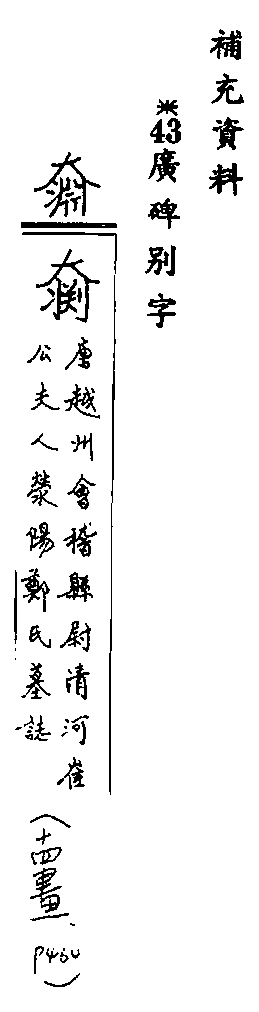 補充資料
※43廣碑別字
奫
唐越州會稽縣尉清河崔
公夫人滎陽鄭氏墓誌
(十四畫、P464)